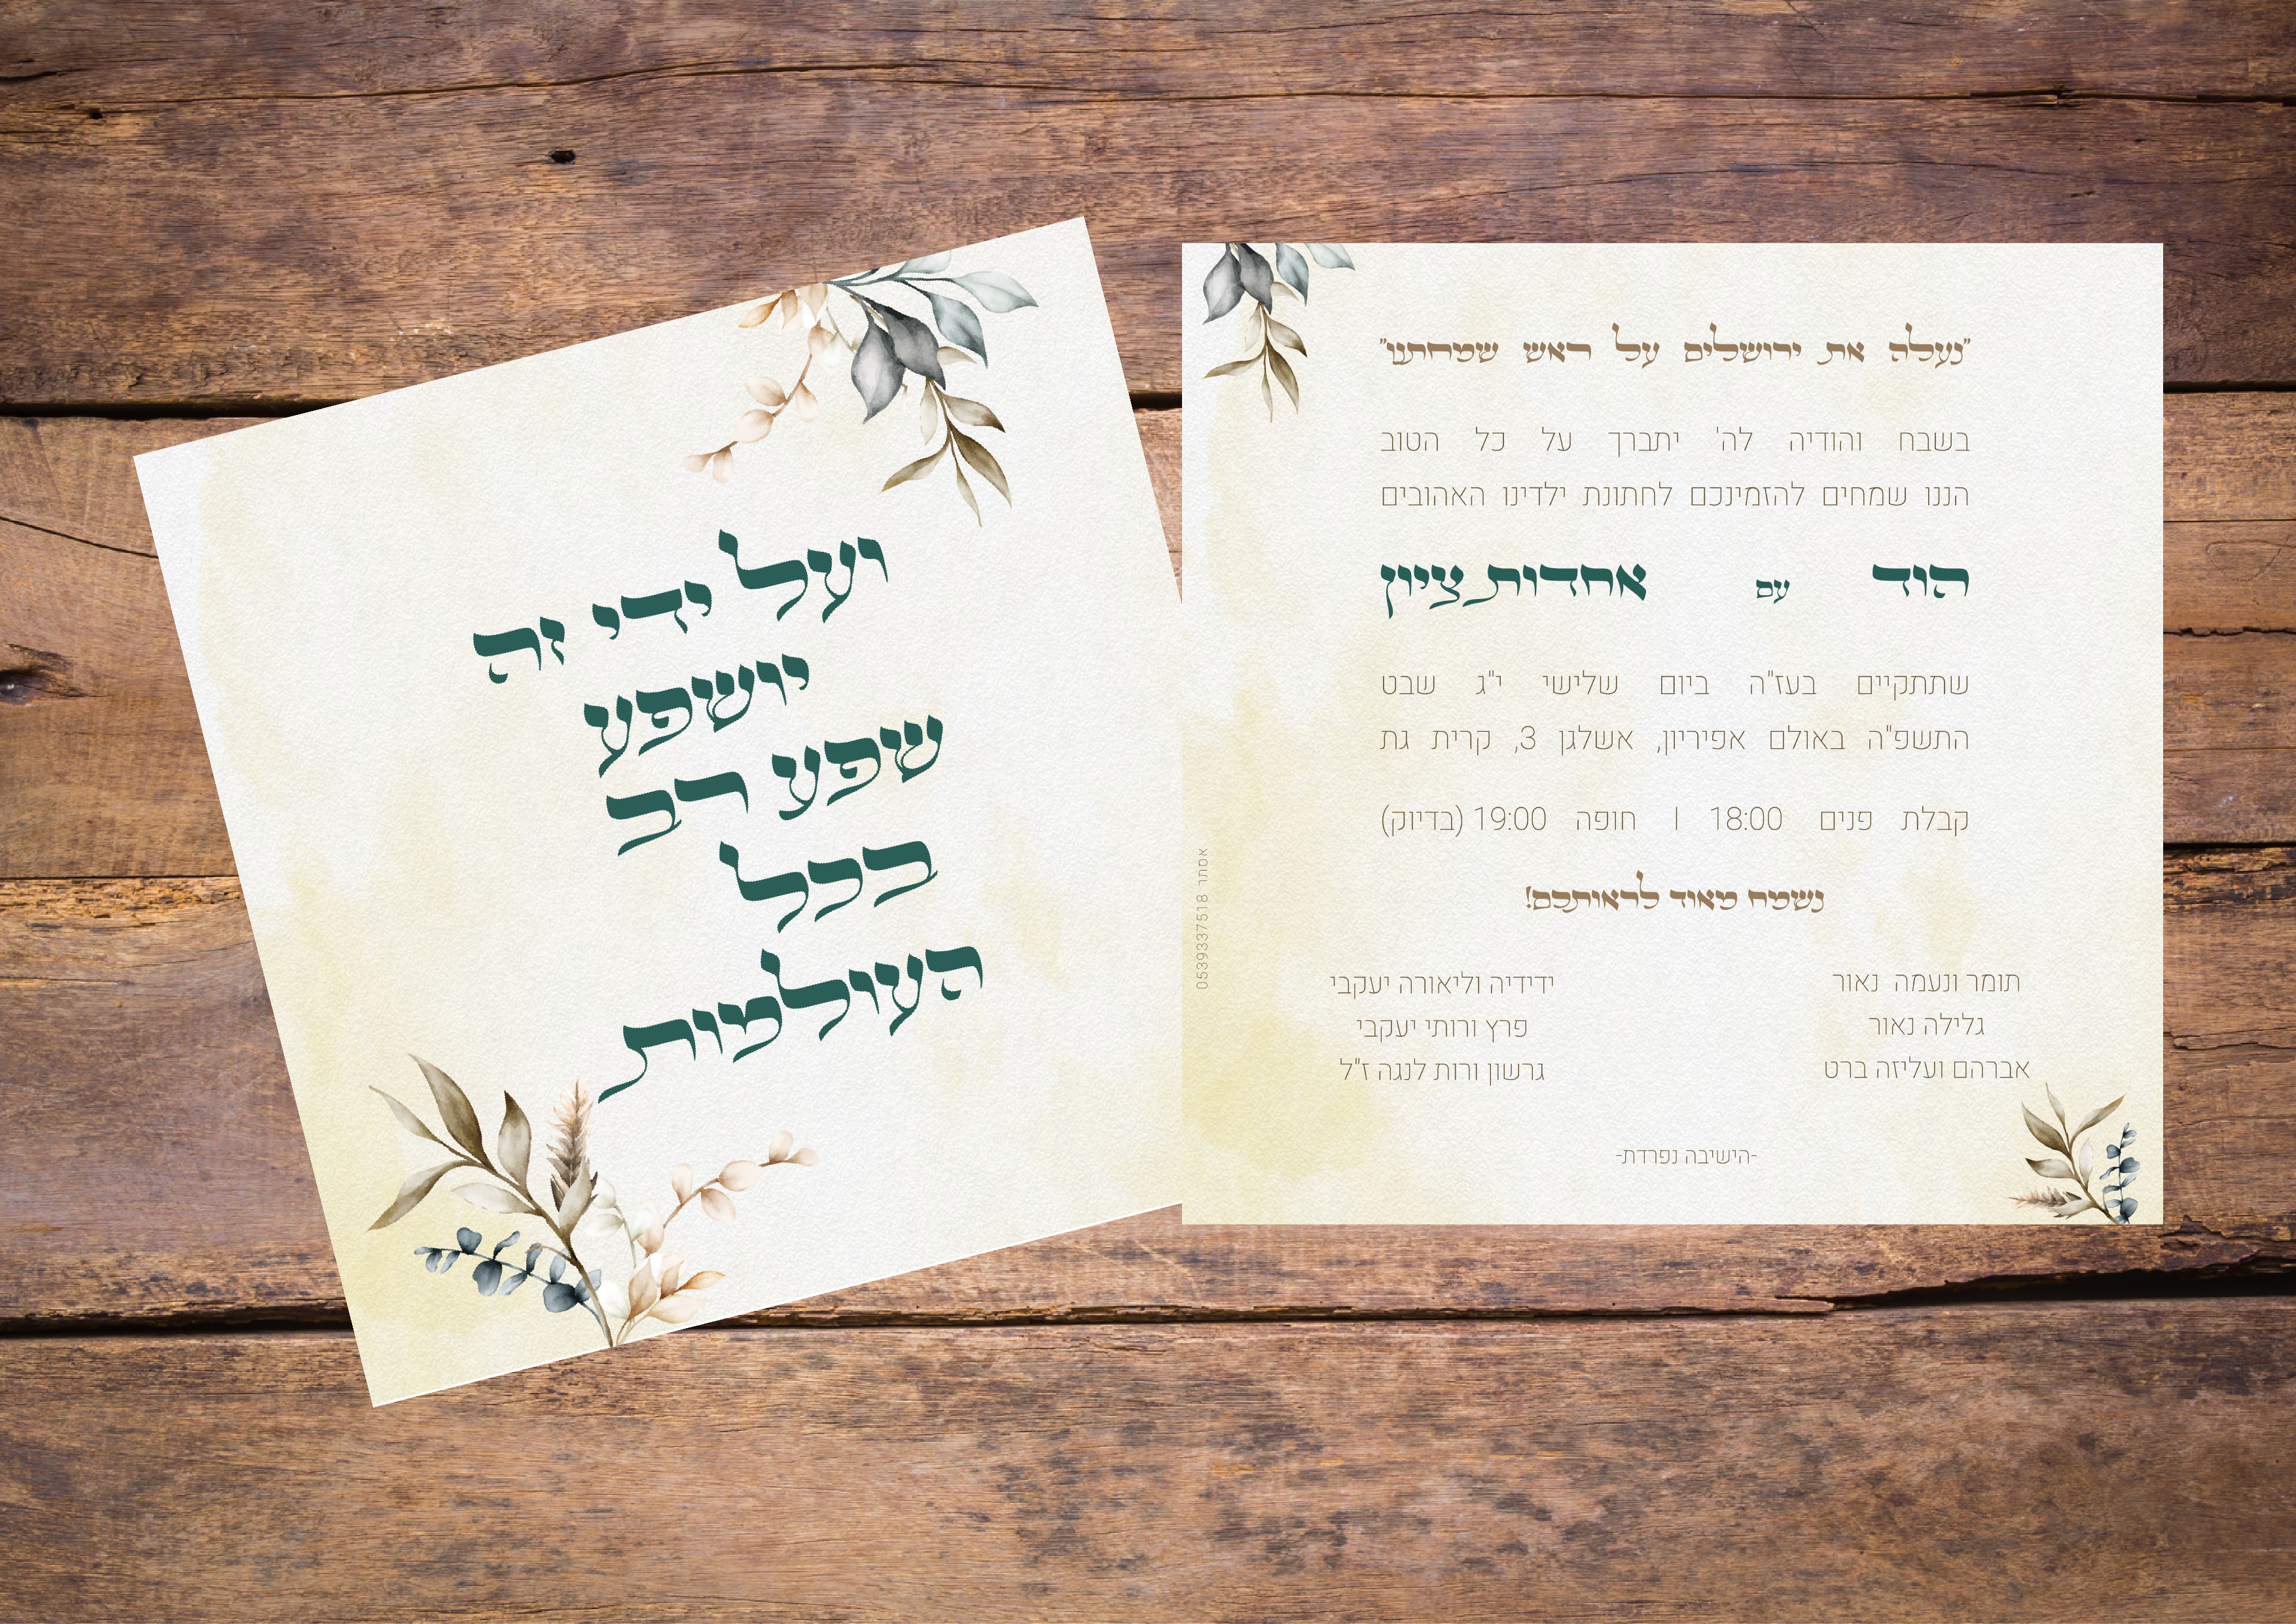 ועל ידי זה
יושפע
שפע רב
בכל
העולמות
"נעלה את ירושלים על ראש שמחתנו"
בשבח והודיה לה' יתברך על כל הטוב
הננו שמחים להזמינכם לחתונת ילדינו האהובים
הוד עם אחדות ציון
שתתקיים בעז"ה ביום שלישי י"ג שבט
התשפ"ה באולם אפיריון, אשלגן 3, קרית גת
קבלת פנים 18:00 | חופה 19:00 (בדיוק)
נשמח מאוד לראותכם!
תומר ונעמה נאור
גלילה נאור
אברהם ועליזה ברט
ידידיה וליאורה יעקבי
פרץ ורותי יעקבי
גרשון ורות לנגה ז"ל
-הישיבה נפרדת-
אסתר 0539337518